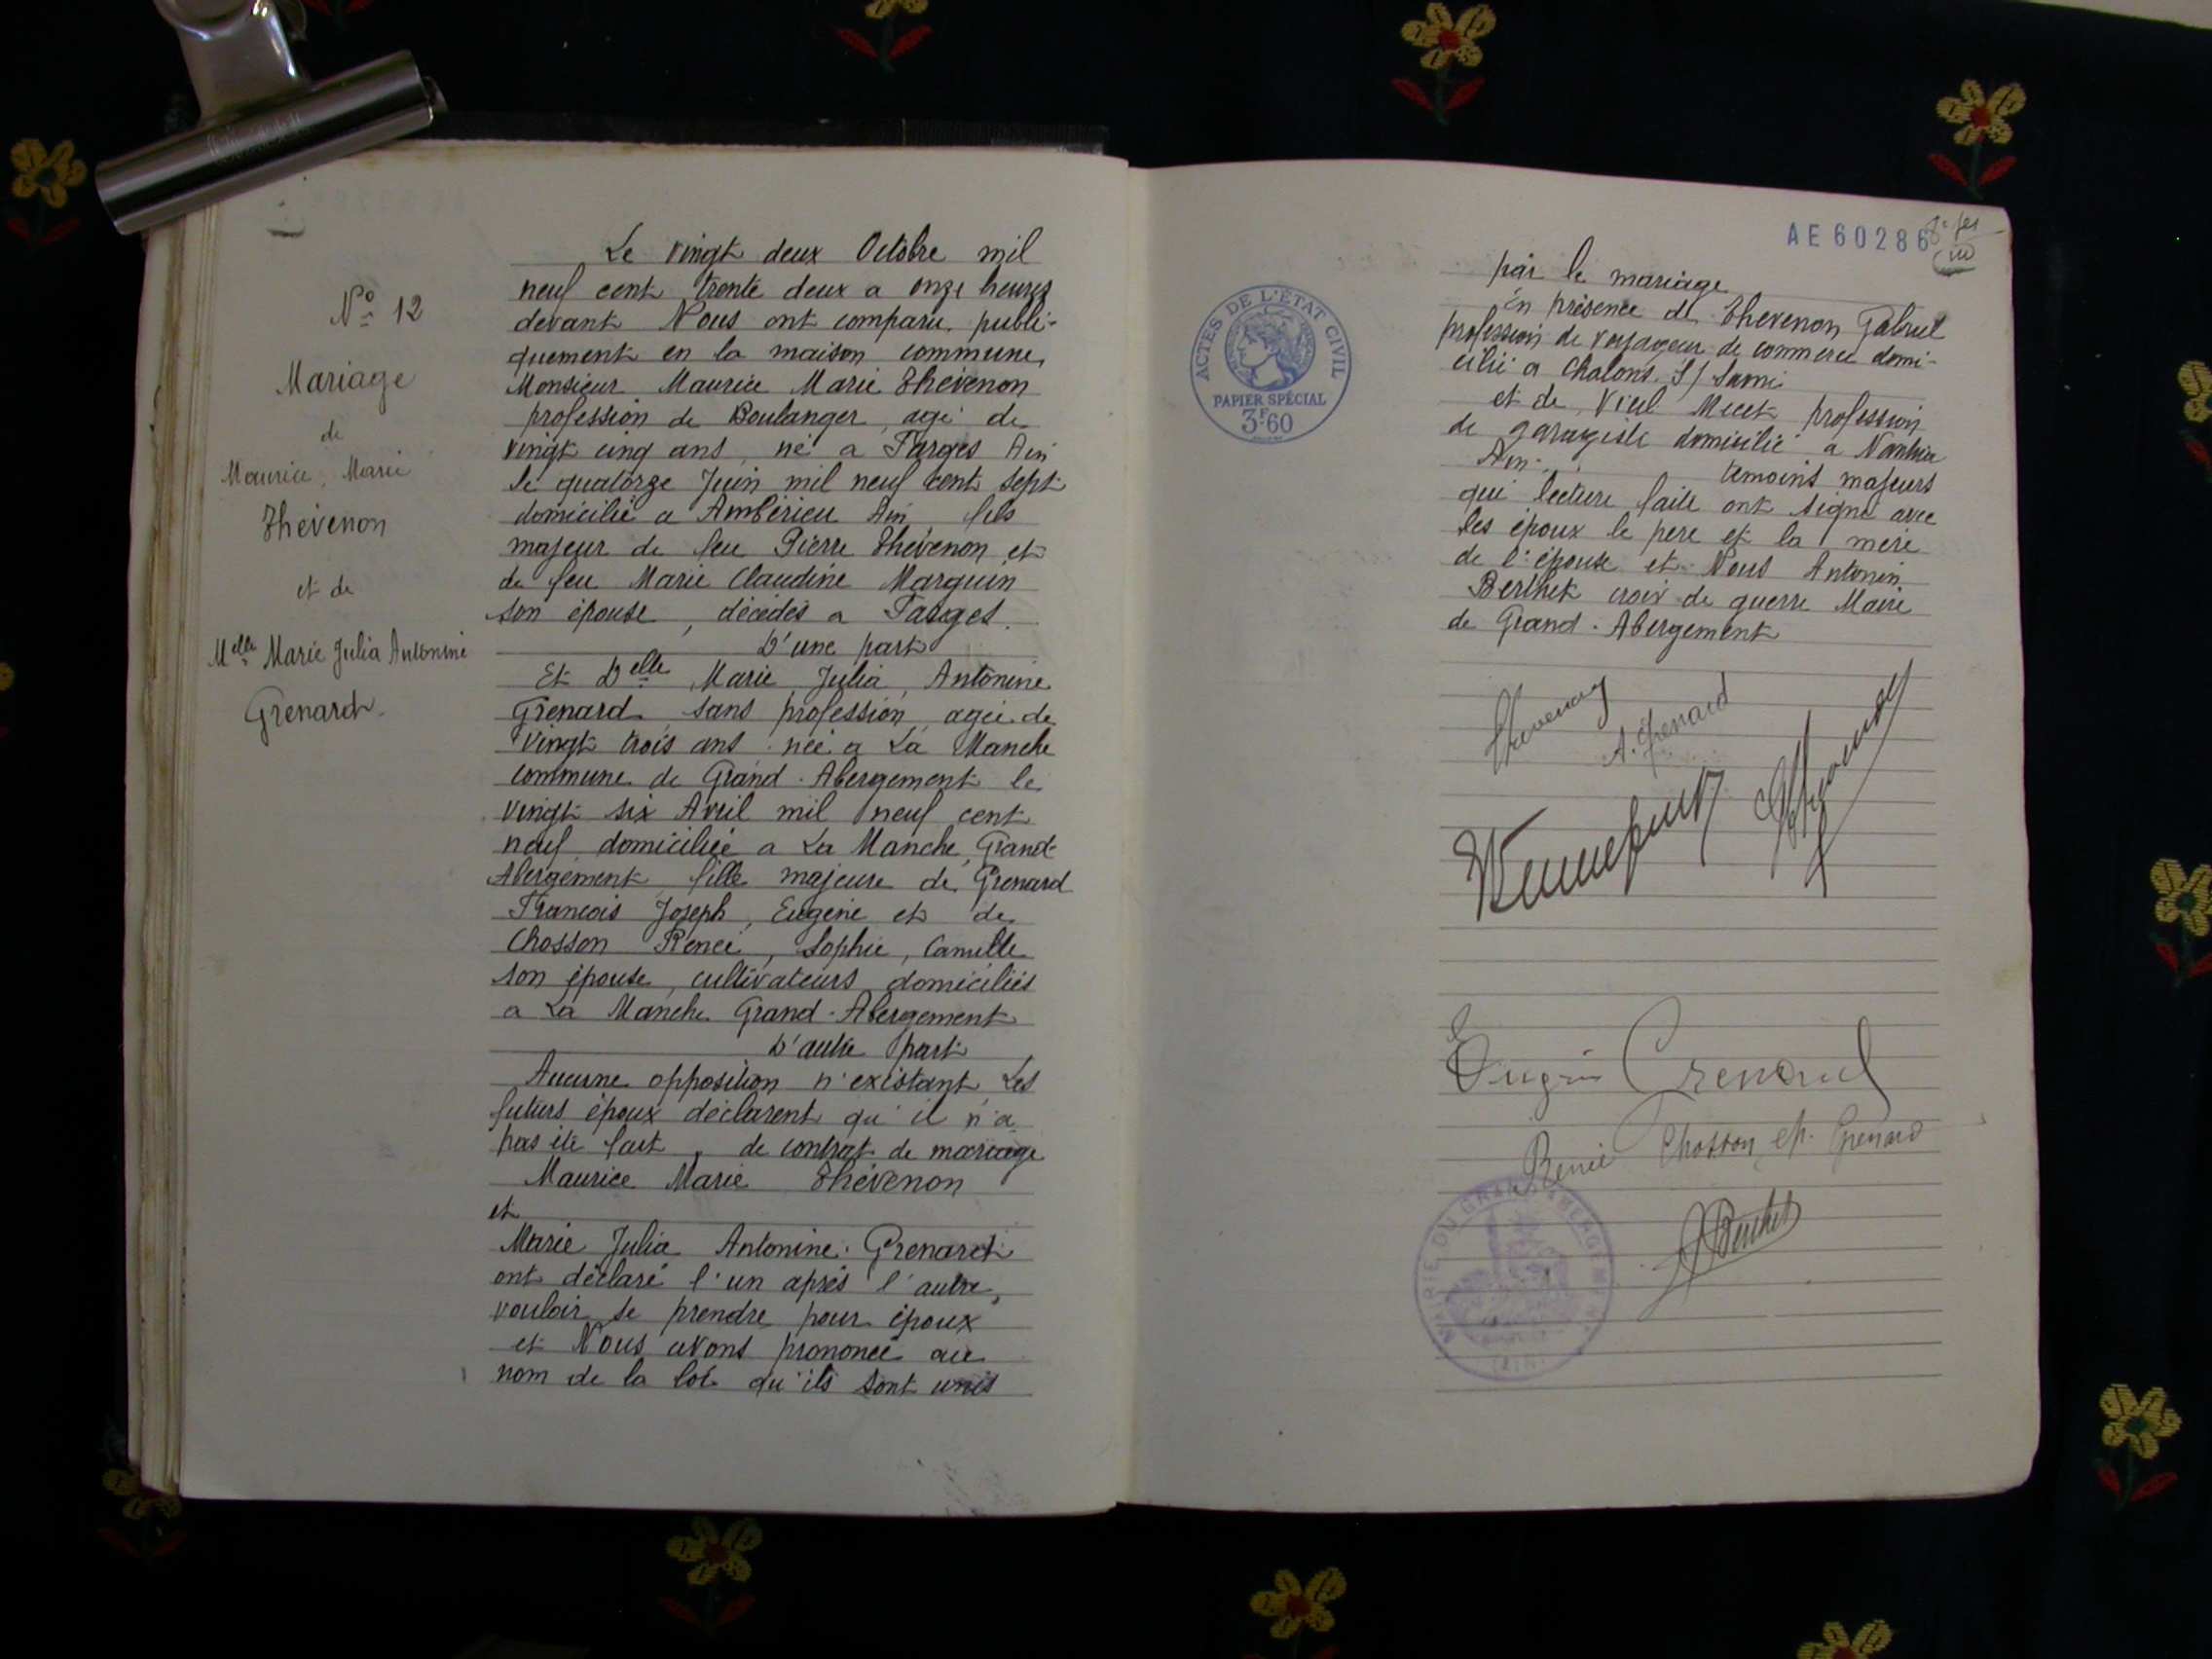 N° 12
Mariage
de
Maurice, Marie
Thévenon
et de
Melle Marie Julia Antonine
Grenard
Le vingt deux Octobre mil
neuf cent trente deux a onze heures
devant Nous ont comparu, publi-
quement en la maison commune,
Monsieur Maurice Marie Thévenon
profession de Boulanger, agé de
vingt cinq ans, né a Farges Ain
le quatorze Juin mil neuf cent sept
domicilié a Ambérieu Ain fils
majeur de feu Pierre Thévenon et
de feu Marie Claudine Marguin
son épouse, décédés a Farges.
D'une part
Et Delle Marie Julia Antonine
Grenard sans profession agée de
vingt trois ans née a La Manche
commune de Grand-Abergement le
vingt six Avril mil neuf cent
neuf domiciliée a La Manche, Grand-
Abergement fille majeure de Grenard
François Joseph, Eugène et de
Chosson Renée, Sophie, Camille
son épouse, cultivateurs domiciliés
a La Manche Grand-Abergement
D'autre part
Aucune opposition n'existant, Les
futurs époux déclarent qu'il n'a
pas été fait de contrat de mariage
Maurice Marie Thévenon
et
Marie Julia Antonine Grenard
ont déclaré l'un après l'autre,
vouloir se prendre pour époux
et Nous avons prononcé au
nom de la loi qu'ils sont unis
AE 60286
ACTES DE L'ÉTAT CIVIL
PAPIER SPÉCIAL
3F60
par le mariage
En présence de Thevenon Gabriel
profession de voyageur de commerce domi-
cilié a Chalons S/
et de profession
de garagiste domicilié a Nantua
Ain témoins majeurs
qui lecture faite ont signé avec
les époux le pere et la mere
de l'épouse et Nous Antonin
Berthet croix de guerre Maire
de Grand-Abergement
Thevenon
A. Grenard
Eugène Grenard
Renée Chosson ep. Grenard
A Berthet
MAIRIE DU GRAND ABERGEMENT
(AIN)